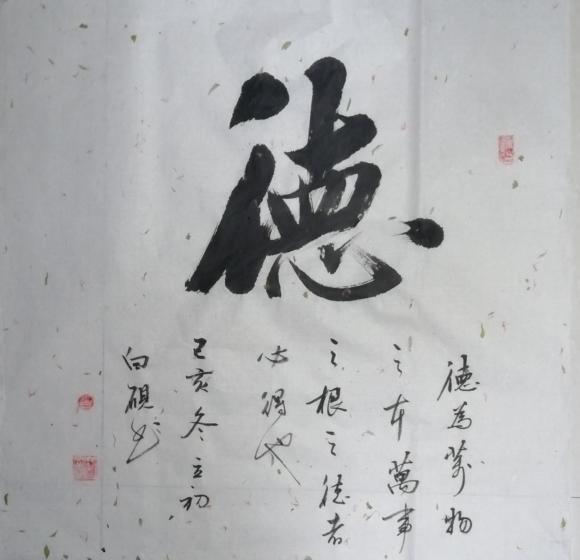 德
德為萬物
之本萬事
之根之德者
必得也
己亥冬立初
白硯书